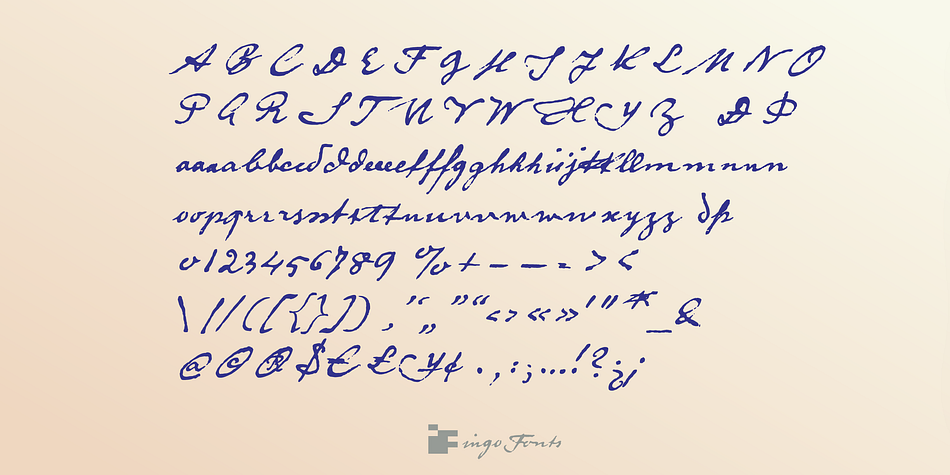 A B C D E F G H I J K L M N O
P Q R S T U V W X Y Z Ð Þ
aaaabbccddddeeeefffgghhhiijkkllmmmnnn
oopqrrrrssstttttuuuvvwwwxyzz ðþ
0123456789 %+-–=><
\|/([{}]) , “ „ ”“‹›«»'"*_&
@©®$€£¥¢ . , : ; … ! ? ¿ ¡
ingo Fonts